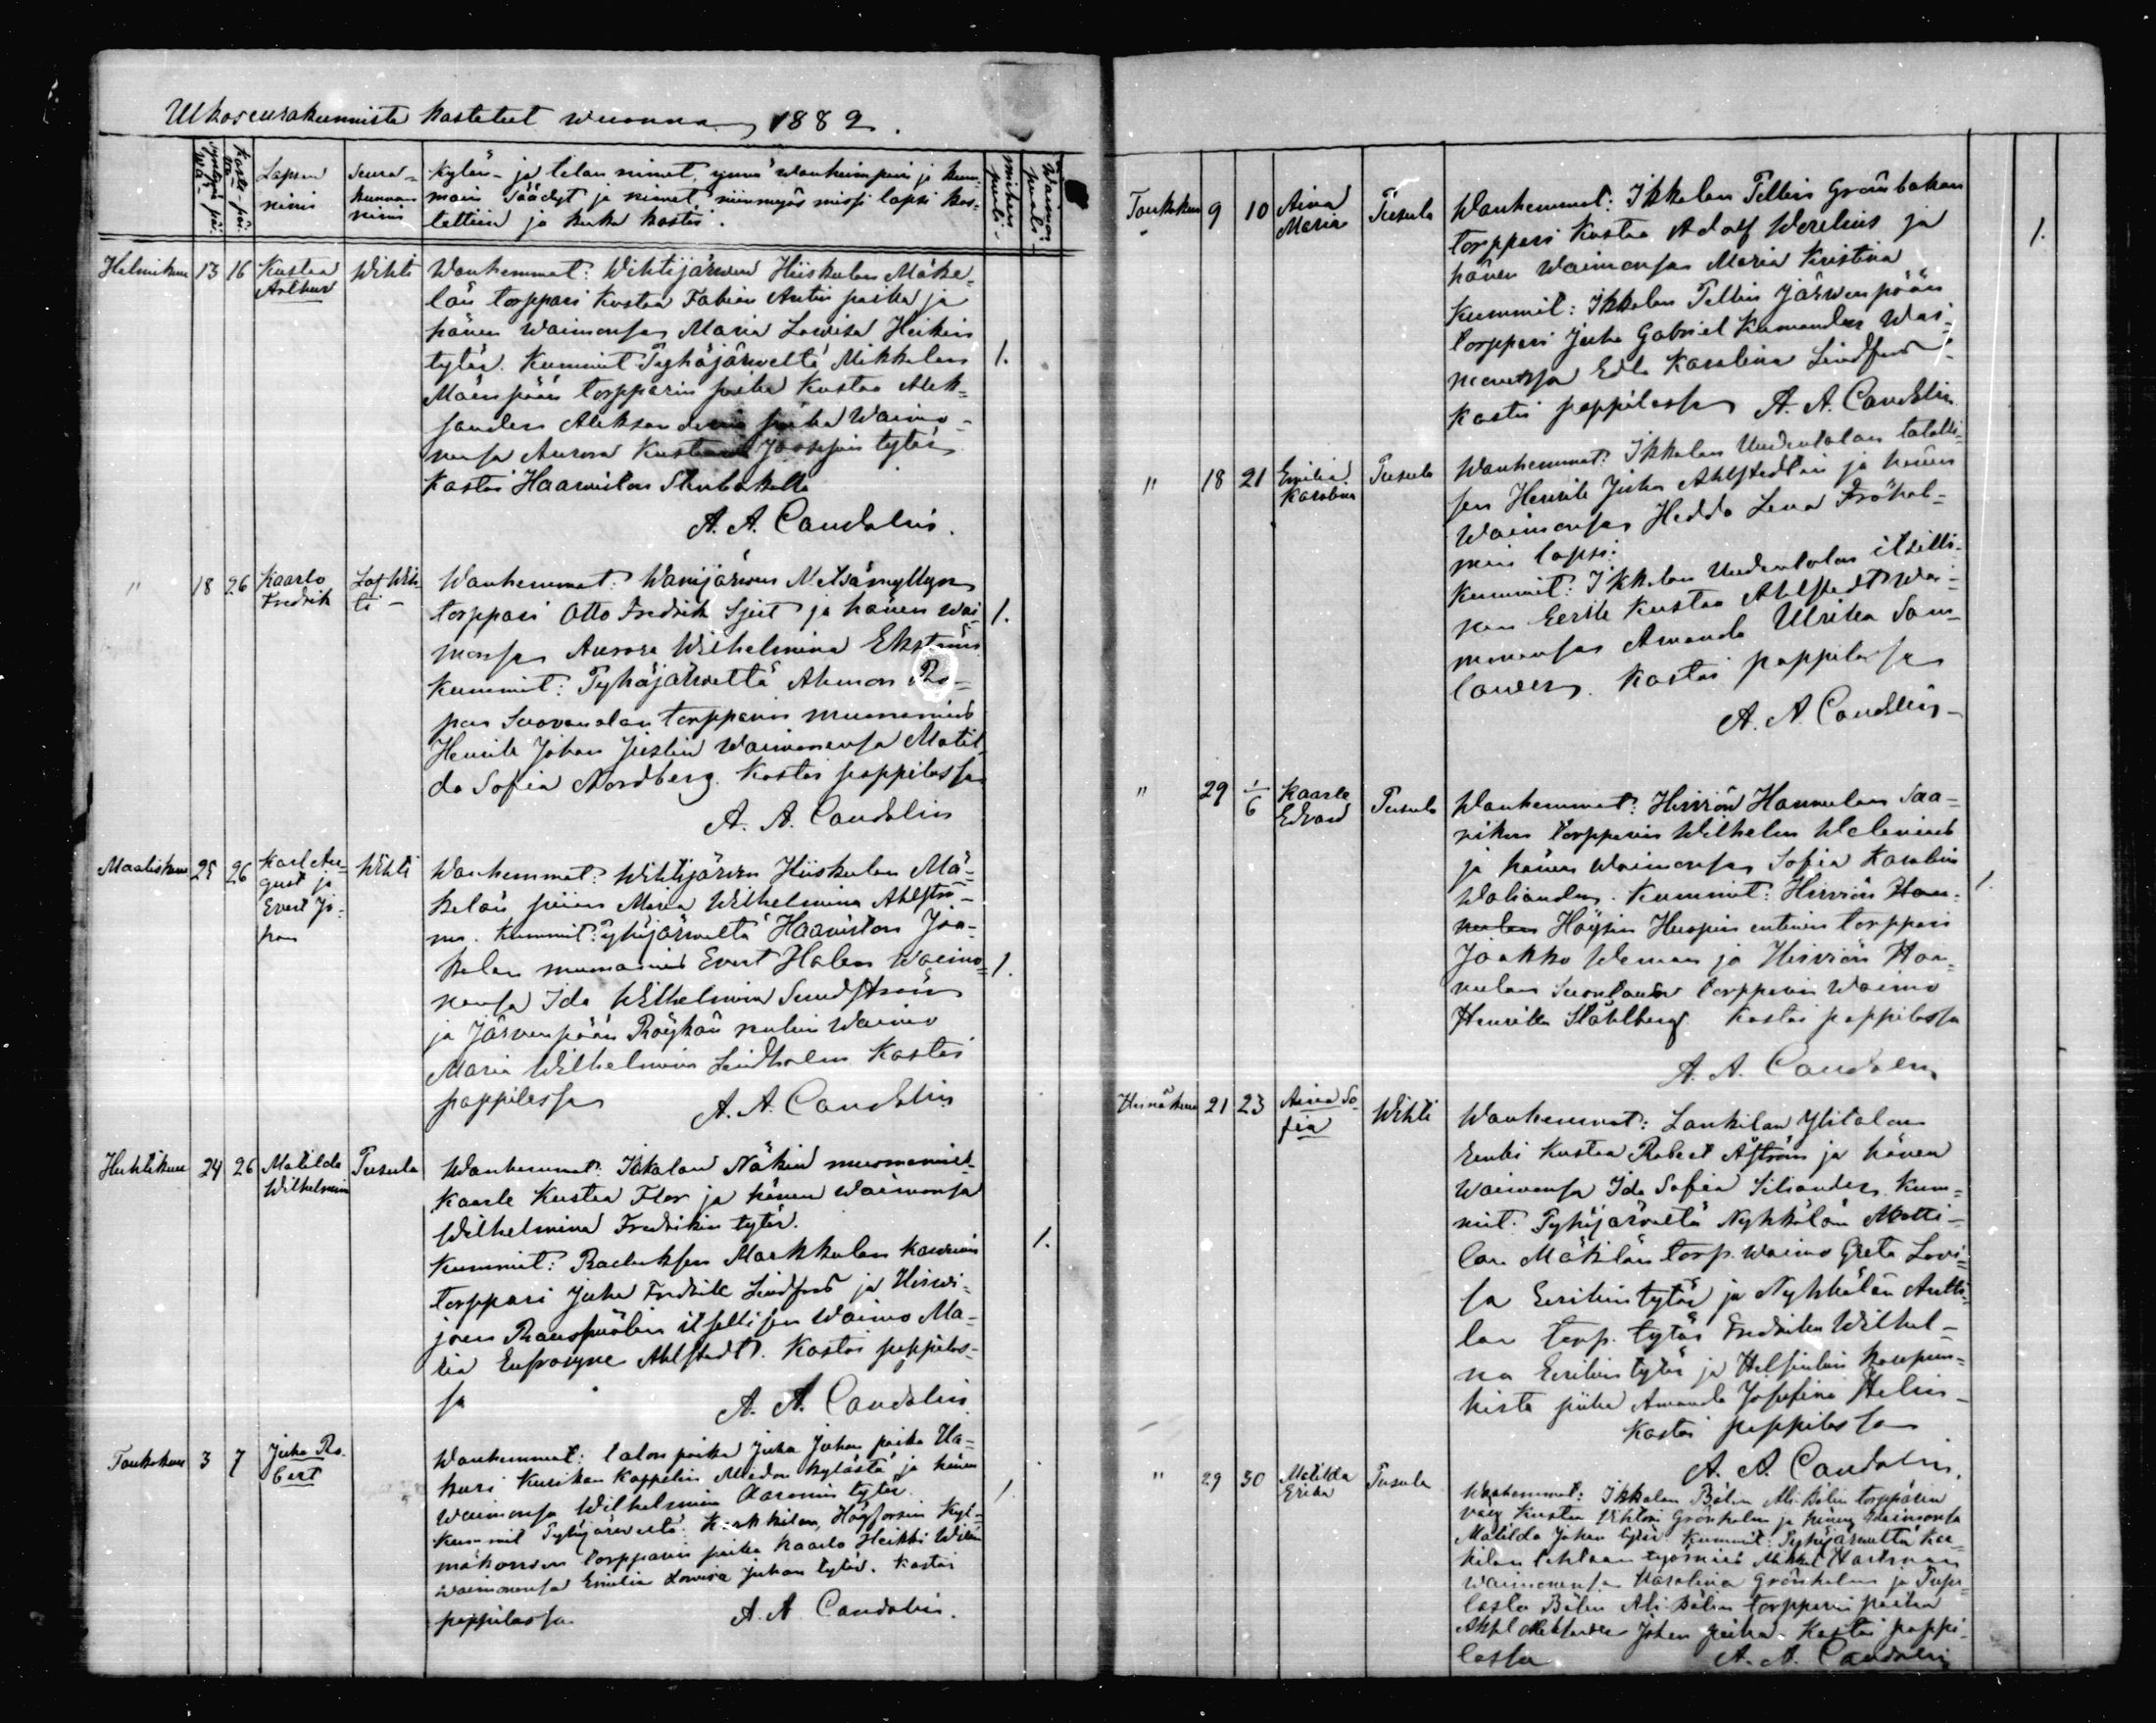 Ulkoseurakunnista kastetut wuonna 1882.
Syntymä päi-
wä
Kaste-päi-
wä
Lapsen
nimi
Seura-
kunnan
nimi
Kylän- ja talon nimet, ynnä wanhempain ja kum-
main säädyt ja nimet, niinmyös missä lapsi kas-
tettiin ja kuka kastoi.
Miehen
puoli
Waimon
puoli
Helmikuu 13 16 Kustaa
Arthur
Wihti
Wanhemmat: Wihtijärwen Hiiskulan Mäke-
län torppari Kustaa Fabian Antin poika ja
hänen waimonsa Maria Lowisa Heikin
tytär. Kummit Pyhäjärweltä Mikkolan
Mäenpään torpparin poika Kustaa Alek-
sander Aleksanderin poika Waimo-
nensa Aurora Josepin tytär
Kastoi Haawiston
A. A. Candolin.
1.
" 18 26 Kaarlo
Fredrik
Loj Wih
ti -
Wanhemmat: Wanjärwen Metsämyllyn
torppari Otto Fredrik Sjest ja hänen wai-
monsa Aurora Wilhelmina Ekström
Kummit: Pyhäjärweltä Ahmon Ro-
pen torpparin muonamies
Henrik Johan Justin Waimonensa Matil-
da Sofia Nordberg. Kastoi pappilassa
A. A. Candolin
1.
Maaliskuu 25 26 Karl Au-
gust ja
Evert Jo-
han
Wihti
Wanhemmat: Wihtijärwen Hiiskulan Mä-
kelän piian Maria Wilhelmina Ahlströ-
m. Kummit: Pyhäjärweltä Haawiston Jaa-
kolan muonamies Evert Holm Waimo-
nensa Ida Wilhelmina Sundström
ja Järwenpään Röykän Waimo
Maria Wilhelmina Lindholm Kastoi
pappilassa A. A. Candolin
1.
Huhtikuu 24 26 Matilda
Wilhelmina
Pusula
Wanhemmat: Ikkalan Näkin muonamies
Kaarle Kustaa Flor ja hänen Waimonsa
Wilhelmina Fredrikin tytär.
Kummit: Radusen Markkulan
torppari Juha Fredrik Lindfors ja Hirwi-
joen itsellisen Waimo Ma-
ria Eufrosyne Ahlstedt. Kastoi pappilas-
sa A. A. Candolin
1.
Toukokuu 3 7 Juha Ro-
bert
Wanhemmat: talon poika Juha Juhan poika Ha-
kuri Kurikan Kappelin Miedon kylästä ja hänen
Waimonsa Wilhelmina Aaronin tytär
Kummit Pyhäjärweltä: Karkkilan, Högforsin
torpparin poika Kaarlo Heikki
waimonensa Emilia Lowisa Juhan tytär. Kastoi
pappilassa A. A. Candolin.
1
Toukokuu 9 10 Aina
Maria
Pusula
Wanhemmat: Ikkalan Pellin Grönbakan
torppari Kustaa Adolf Werelius ja
hänen Waimonsa Maria Kristina
Kummit: Ikkalan Pellin Järwenpään
torppari Juha Gabriel Wai-
monensa Edla Karolina Lindfors
Kastoi pappilassa A. A. Candolin
1.
" 18 21 Emilia
Karolina
Pusula
Wanhemmat: Ikkalan Uudentalon talolli-
sen Henrik Juha Ahlstedtin ja hänen
Waimonsa Hedda Lena Fröhol-
min lapsi:
Kummit: Ikkalan Uudentalon itselli-
nen Eerik Kustaa Ahlstedt Wai-
monensa Amanda Ulrika Sam
Kastoi pappilassa
A. A. Candolin
" 29 1/6 Kaarle
Edvard
Pusula
Wanhemmat: Hirwiön Hannulan Saa-
torpparin Wilhelm Welenius
ja hänen Waimonsa Sofia Karolina
Kummit: Hirwiön Han-
nulan Höysin entinen torppari
Jaakko Weman ja Hirwiön Han-
nulan torpparin Waimo
Henrika Ståhlberg. Kastoi pappilassa
A. A. Candolin
1.
Heinäkuu 21 23 Aina So-
fia
Wihti
Wanhemmat: Lankilan Ylitalon
Renki Kustaa Robert Åström ja hänen
Waimonsa Ida Sofia Siliander. Kum-
mit: Pyhäjärweltä Nyhkälän Matti-
lan Mäkilän torp. waimo Greta Lowi-
sa Eerikin tytär ja Nyhkälän Antti-
lan torp. tytär Fredrika Wilhel-
na Eerikin tytär ja Helsinkin kaupun-
kista piika Amanda Josefina Helin
Kastoi pappilassa
A. A. Candolin.
" 29 30 Matilda
Erika
Pusula
Wanhemmat: Ikkalan Bölen Ali-Bölen torpparin
Kustaa Viktori Grönholm ja hänen Waimonsa
Matilda Johan tytär. Kummit: Pyhäjärweltä Kar-
kilan tehtaan työmies Mikkel Hartman
waimonensa Karolina Grönholm ja Pusu-
lasta Bölen Ali-Bölen torpparin poika
Johan poika. Kastoi pappi-
lassa A. A. Candolin